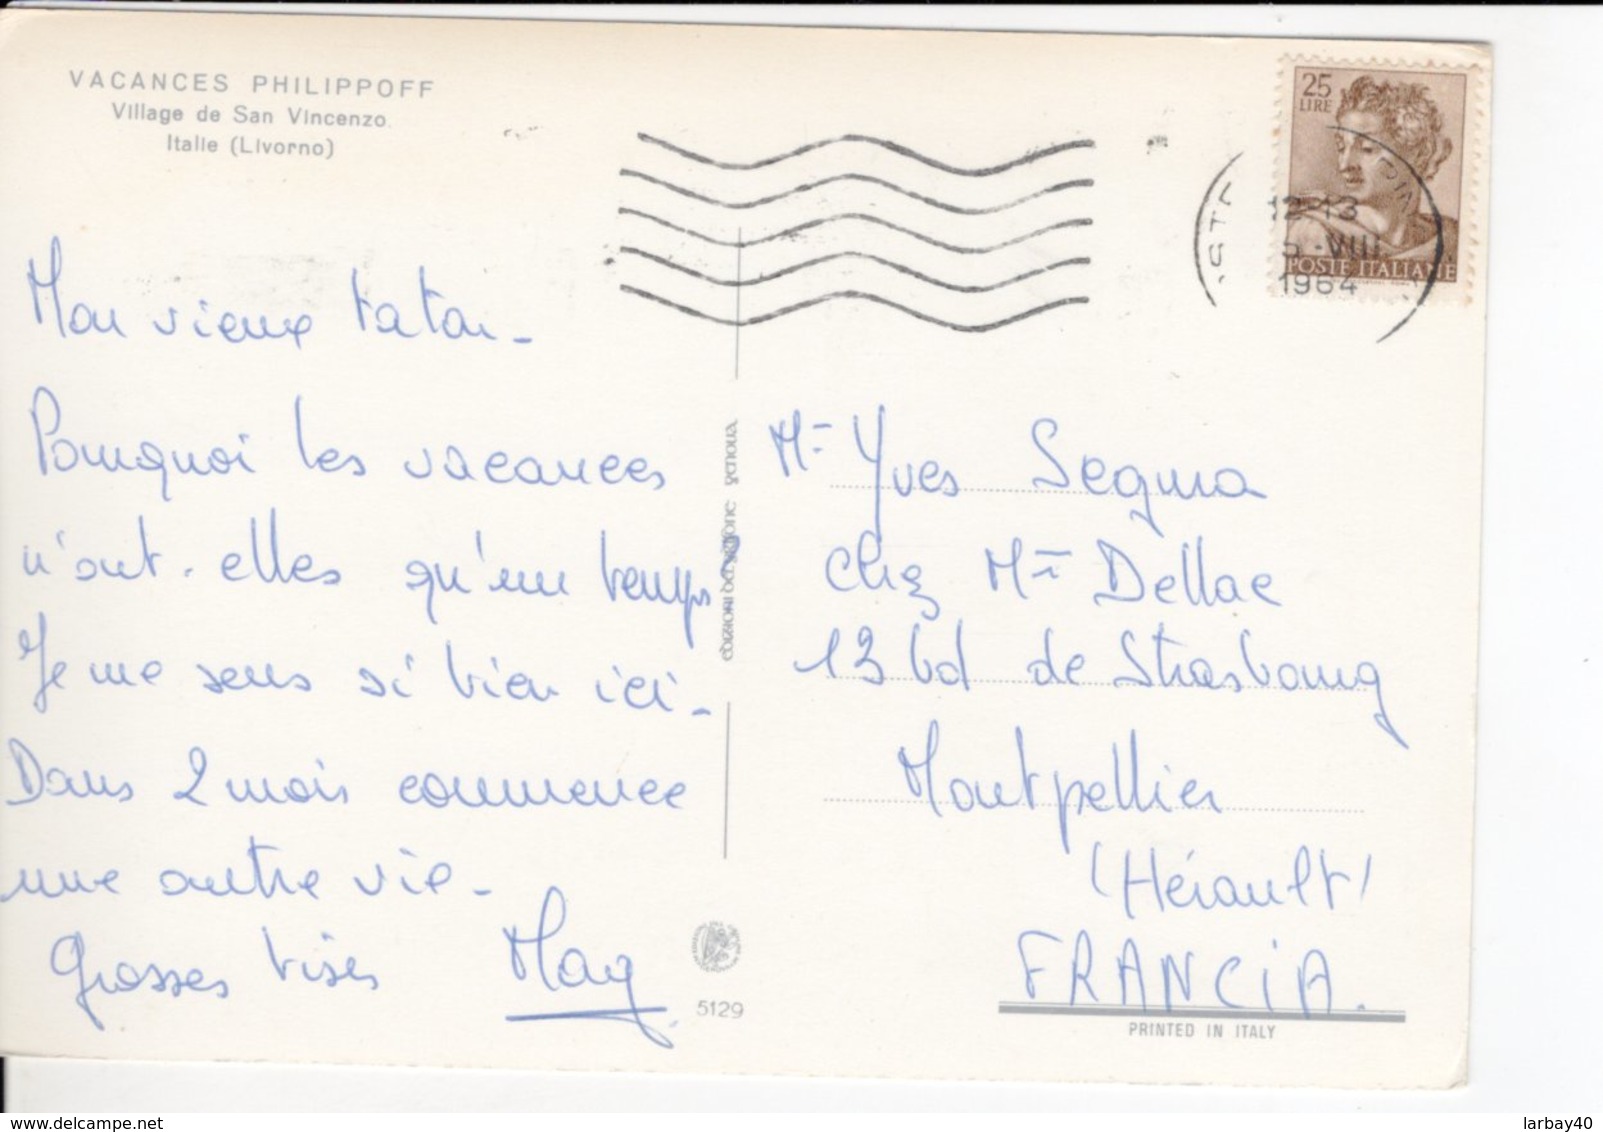 VACANCES PHILIPPOFF
Village de San Vincenzo.
Italie (Livorno)
Mon vieux taton -
Pourquoi les vacances
n'ont-elles qu'un temps?
Je me sens si bien ici -
Dans 2 mois commence
une autre vie -
Grosses bises
May
25
LIRE
POSTE ITALIANE
12-13
VIII
1964
Mr Yves Segura
chez Mr Dellac
13 bd de Strasbourg
Montpellier
(Hérault)
FRANCIA.
5129
PRINTED IN ITALY
delcampe.net
larbay40